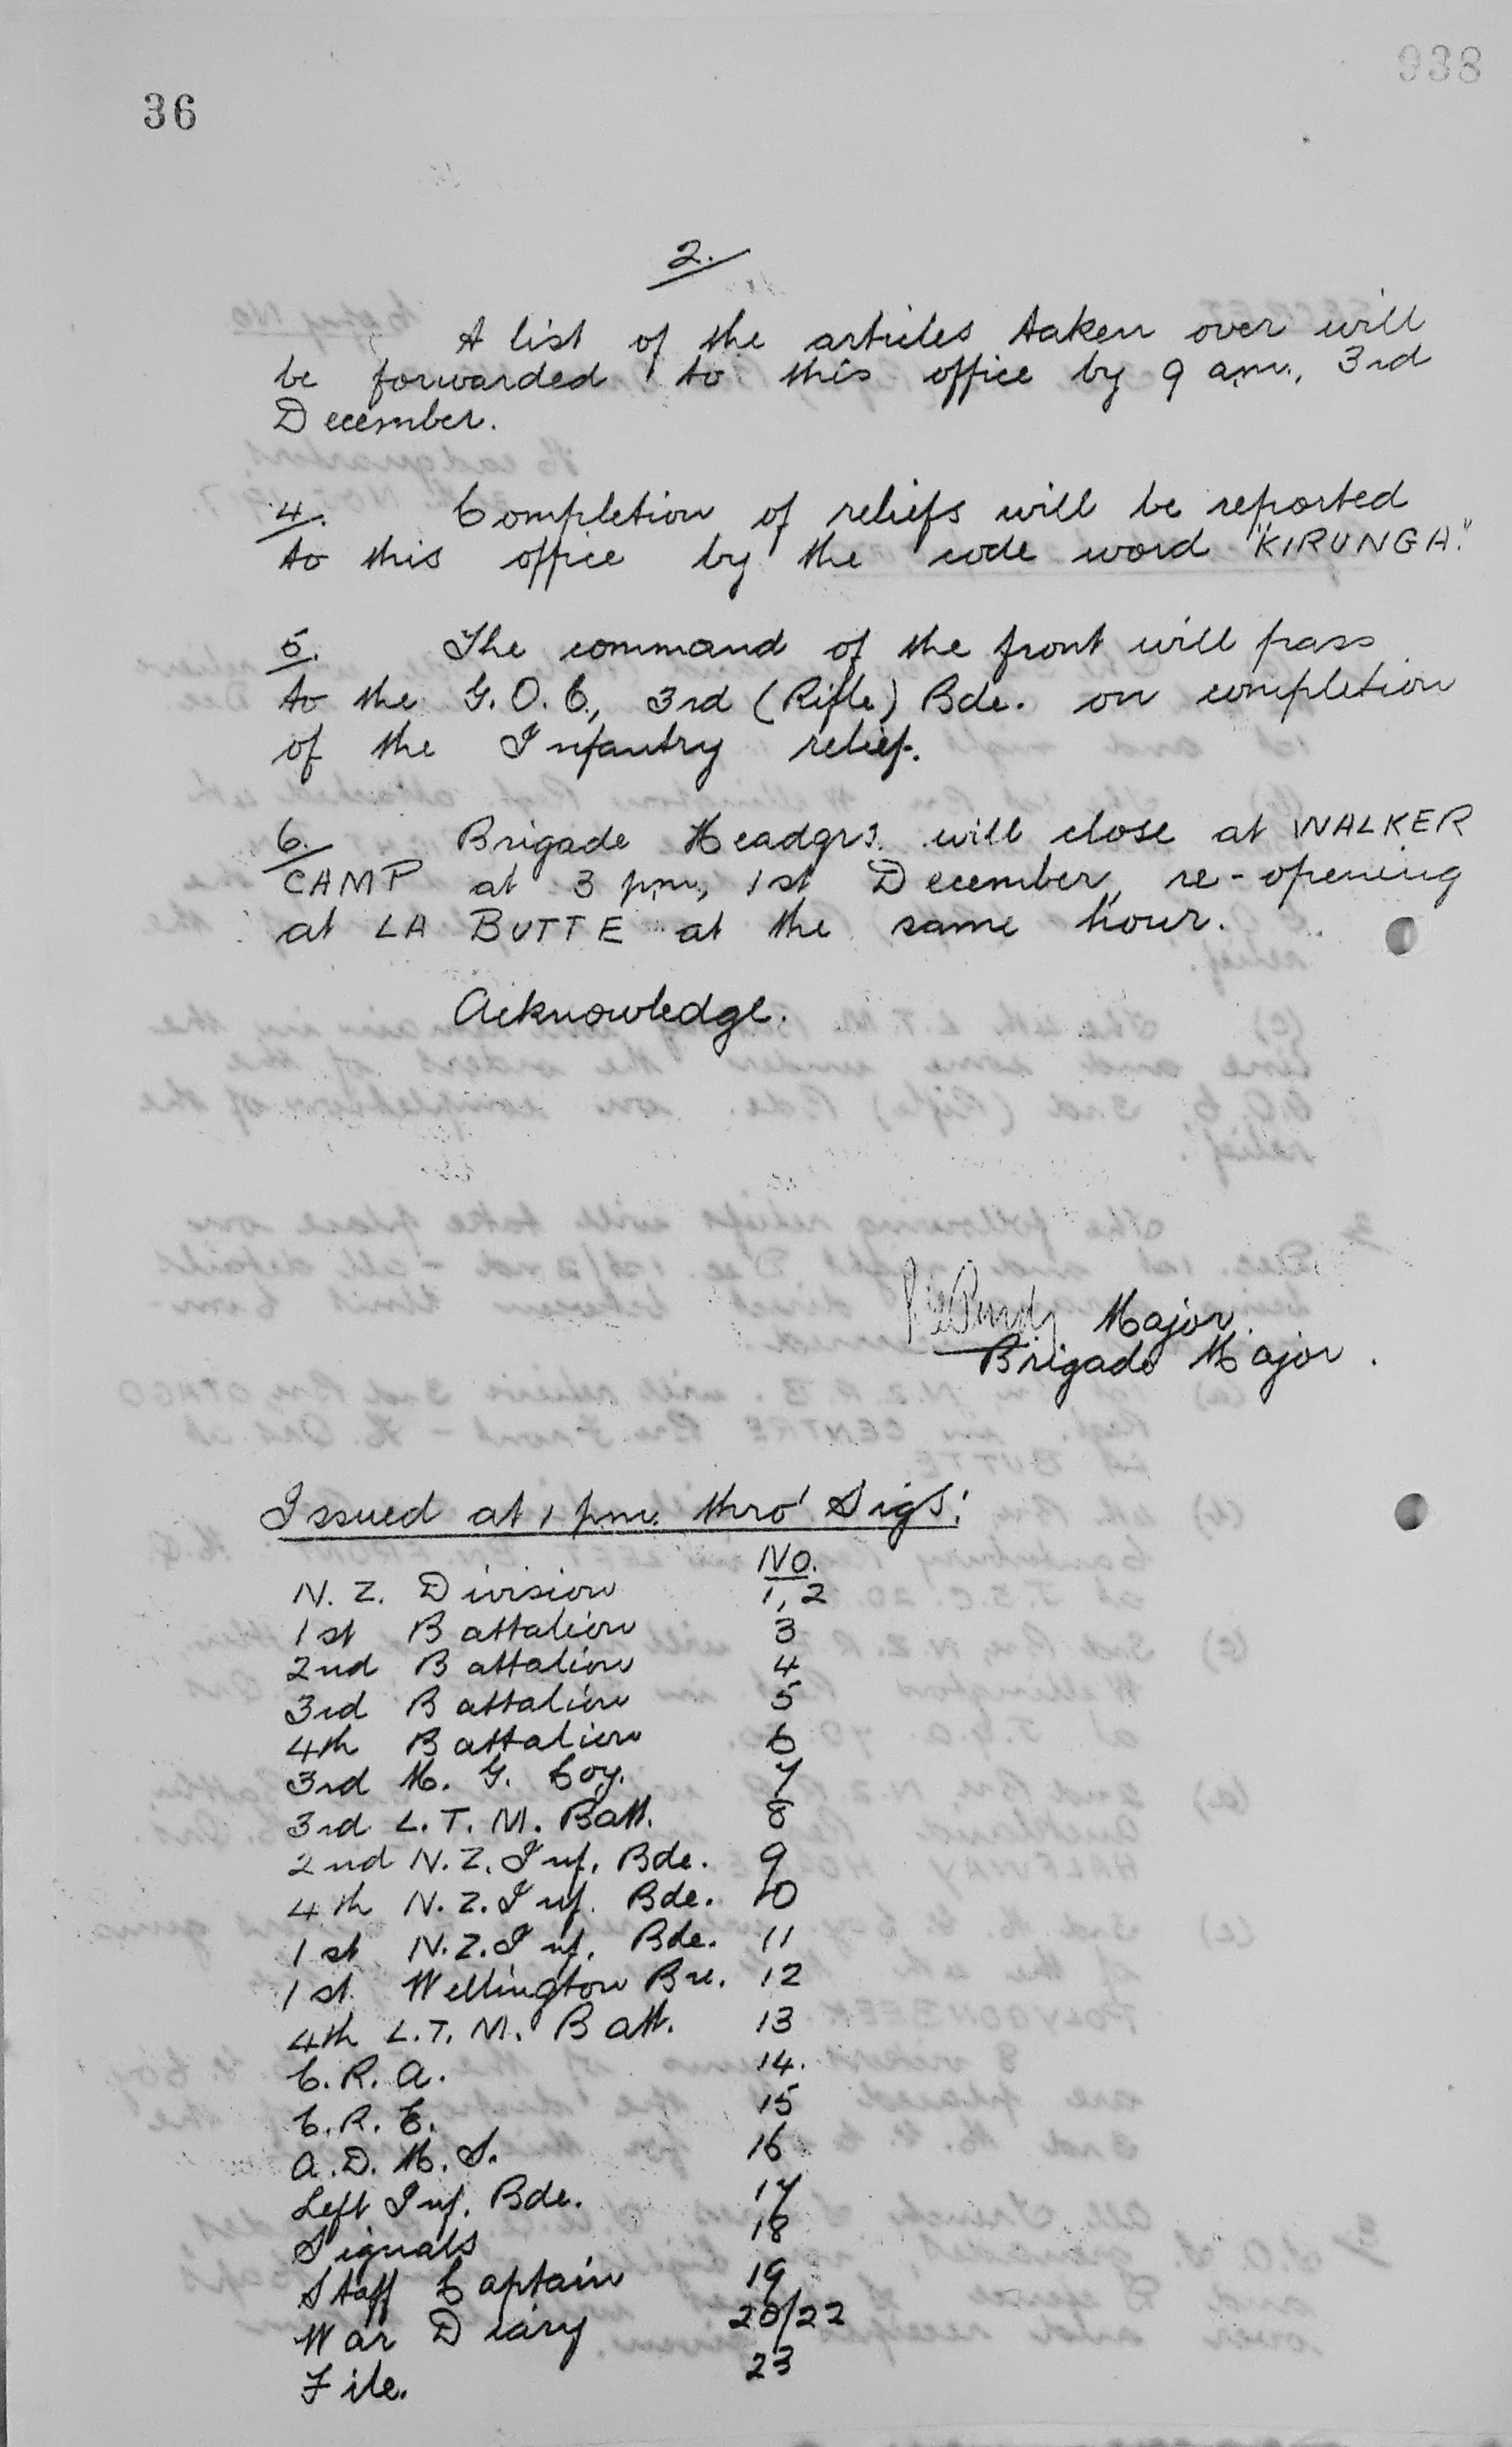 938
36
2.
A list of the articles taken over will
be forwarded to this office by 9 a.m., 3rd
December.
4. Completion of reliefs will be reported
to this office by the code word "KIRUNGA."
5. The command of the front will pass
to the G.O.C., 3rd (Rifle) Bde. on completion
of the Infantry relief.
6. Brigade Headqrs. will close at WALKER
CAMP at 3 p.m., 1st December, re-opening
at LA BUTTE at the same hour.
Acknowledge.
Major.
Brigade Major.
Issued at 1 p.m. thro' Sigs:
No.
N.Z. Division 1, 2
1st Battalion 3
2nd Battalion 4
3rd Battalion 5
4th Battalion 6
3rd M.G. Coy. 7
3rd L.T.M. Batt. 8
2nd N.Z. Inf. Bde. 9
4th N.Z. Inf. Bde. 10
1st N.Z. Inf. Bde. 11
1st Wellington Bn. 12
4th L.T.M. Batt. 13
C.R.A. 14.
C.R.E. 15
A.D.M.S. 16
Left Inf. Bde. 17
Signals 18
Staff Captain 19
War Diary 20/22
File. 23